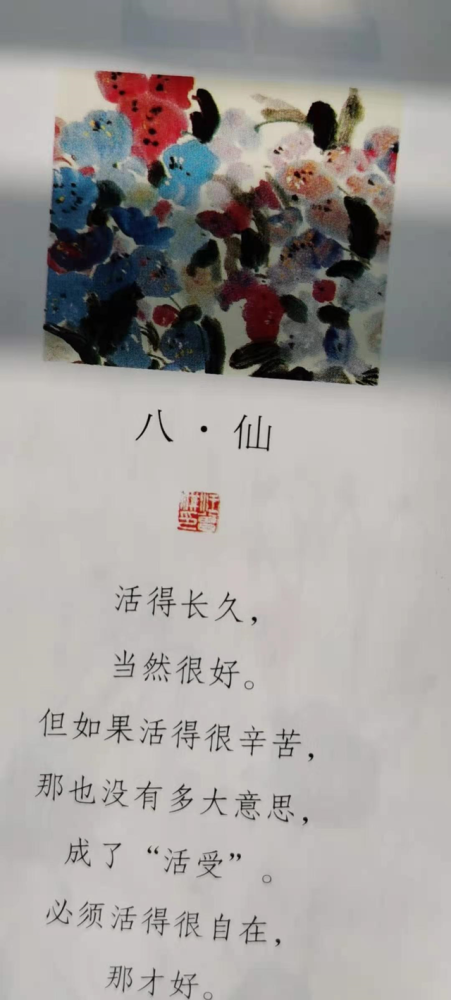 八·仙
活得长久，
当然很好。
但如果活得很辛苦，
那也没有多大意思，
成了“活受”。
必须活得很自在，
那才好。